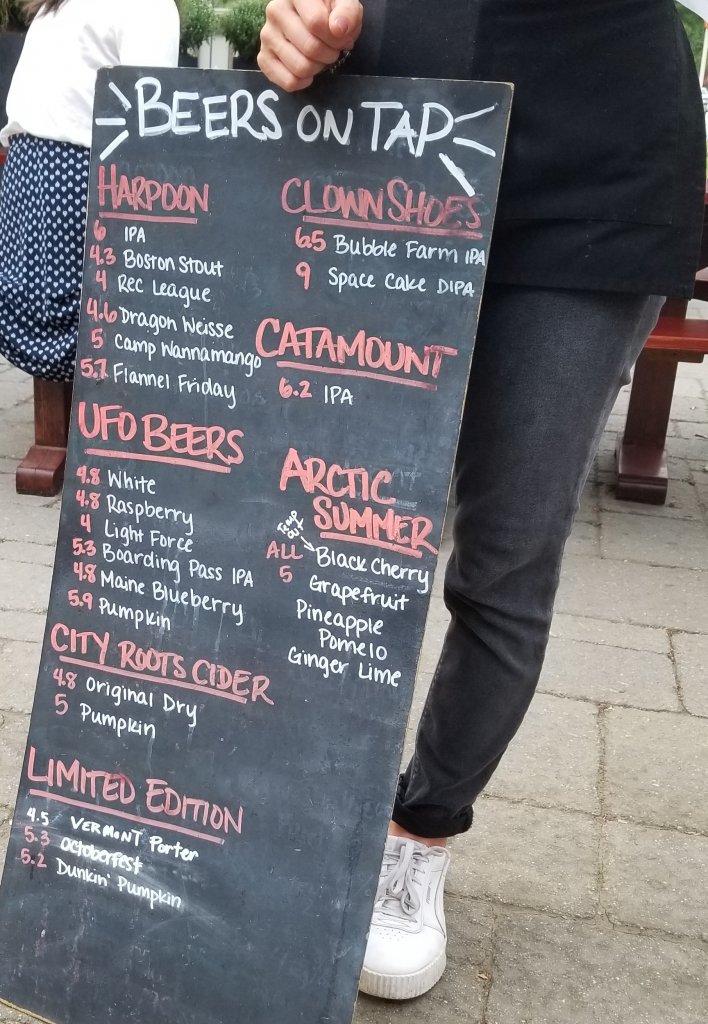 BEERS ON TAP
HARPOON
6 IPA
4.3 Boston Stout
4 Rec League
4.6 Dragon Weisse
5 Camp Wannamango
5.7 Flannel Friday
UFO BEERS
4.8 White
4.8 Raspberry
4 Light Force
5.3 Boarding Pass IPA
4.8 Maine Blueberry
5.9 Pumpkin
CITY ROOTS CIDER
4.8 Original Dry
5 Pumpkin
LIMITED EDITION
4.5 VERMONT Porter
5.3 Octoberfest
5.2 Dunkin' Pumpkin
CLOWN SHOES
6.5 Bubble Farm IPA
9 Space Cake DIPA
CATAMOUNT
6.2 IPA
ARCTIC
SUMMER
Temp
out
ALL
5
Black Cherry
Grapefruit
Pineapple
Pomelo
Ginger Lime